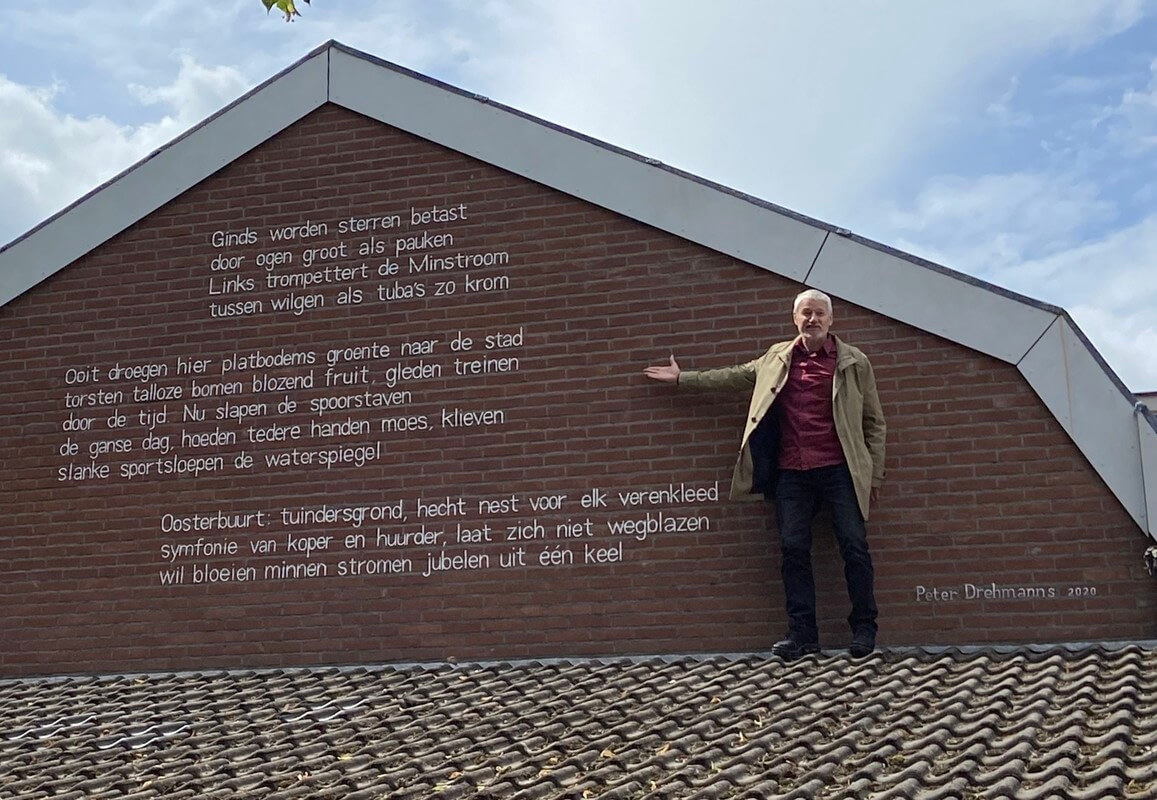 Ginds worden sterren betast
door ogen groot als pauken
Links trompettert de Minstroom
tussen wilgen als tuba's zo krom
Ooit droegen hier platbodems groente naar de stad
torsten talloze bomen blozend fruit, gleden treinen
door de tijd. Nu slapen de spoorstaven
de ganse dag, hoeden tedere handen moes, klieven
slanke sportsloepen de waterspiegel
Oosterbuurt: tuindersgrond, hecht nest voor elk verenkleed
symfonie van koper en huurder, laat zich niet wegblazen
wil bloeien minnen stromen jubelen uit één keel
Peter Drehmanns 2020